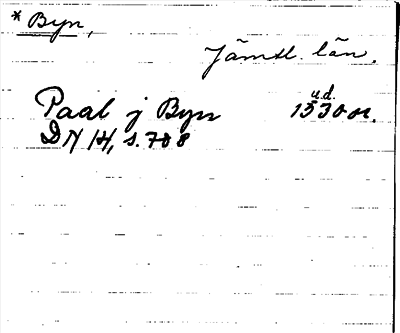 * Byn,
Jämtl. län.
u.d.
Paal j Byn 1530 or.
DN 14, s. 708